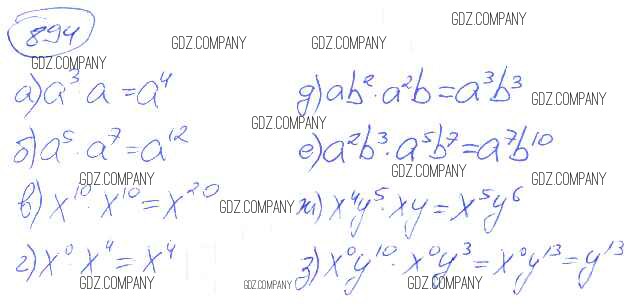 894
GDZ.COMPANY
GDZ.COMPANY GDZ.COMPANY
GDZ.COMPANY
а) a³ · a = a⁴
д) ab² · a²b = a³b³
GDZ.COMPANY
GDZ.COMPANY
б) a⁵ · a⁷ = a¹²
е) a²b³ · a⁵b⁷ = a⁷b¹⁰
GDZ.COMPANY GDZ.COMPANY GDZ.COMPANY
в) x¹⁰ · x¹⁰ = x²⁰
GDZ.COMPANY
ж) x⁴y⁵ · xy = x⁵y⁶
г) x⁰ · x⁴ = x⁴
з) x⁰y¹⁰ · x⁰y³ = x⁰y¹³ = y¹³
GDZ.COMPANY GDZ.COMPANY GDZ.COMPANY